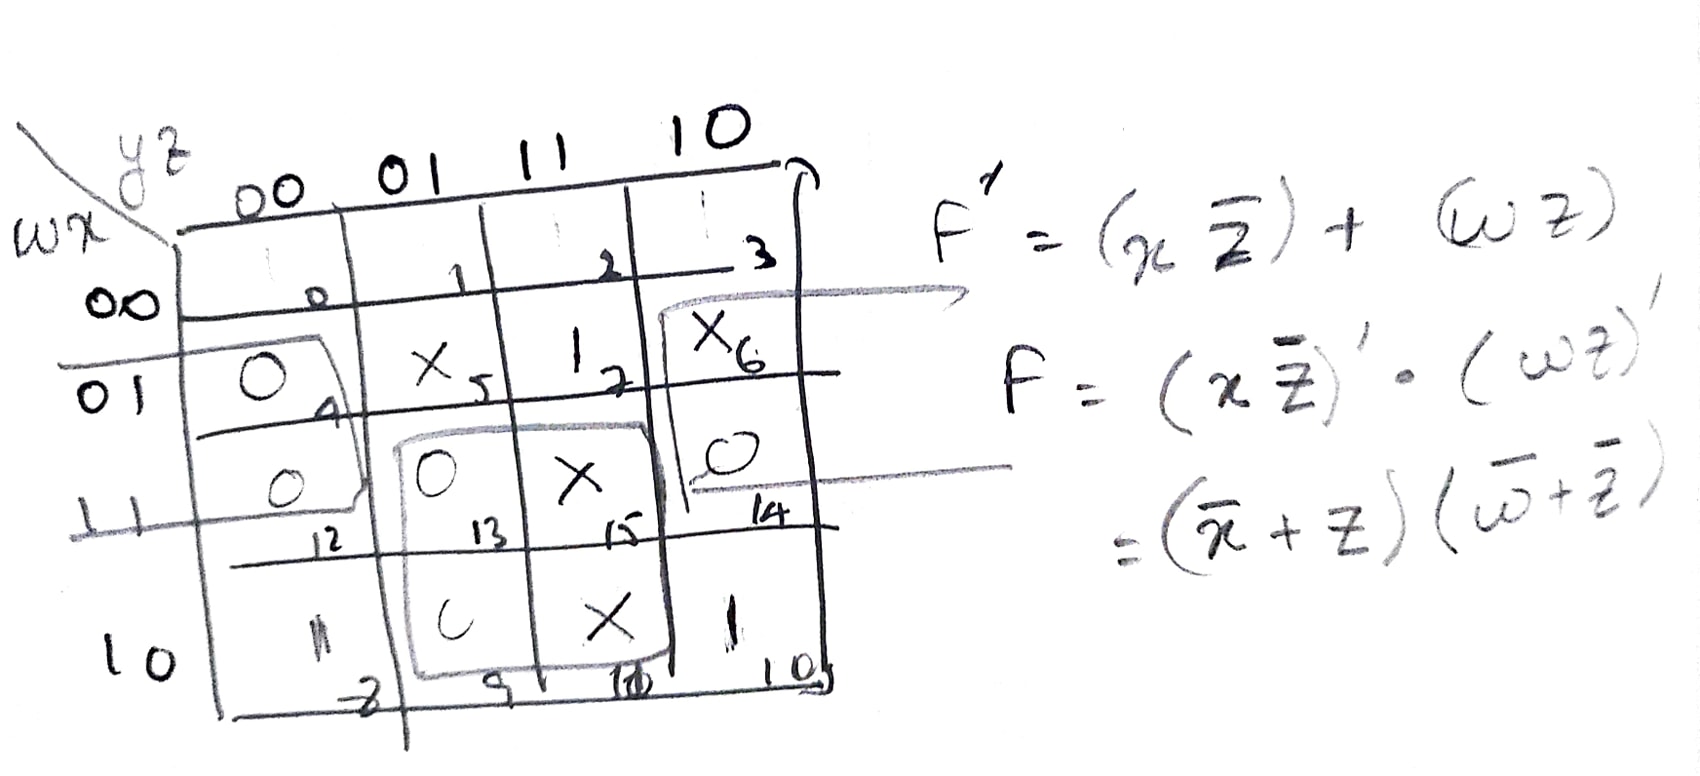 yz
wx
00 01 11 10
00 1 0 1 1 1 2 1 3
01 0 4 X 5 1 7 X 6
11 0 12 0 13 X 15 0 14
10 1 8 0 9 X 1 10
F' = (x z̅) + (w z)
F = (x z̅)' · (wz)'
= (x̅ + z) (w̅ + z̅)